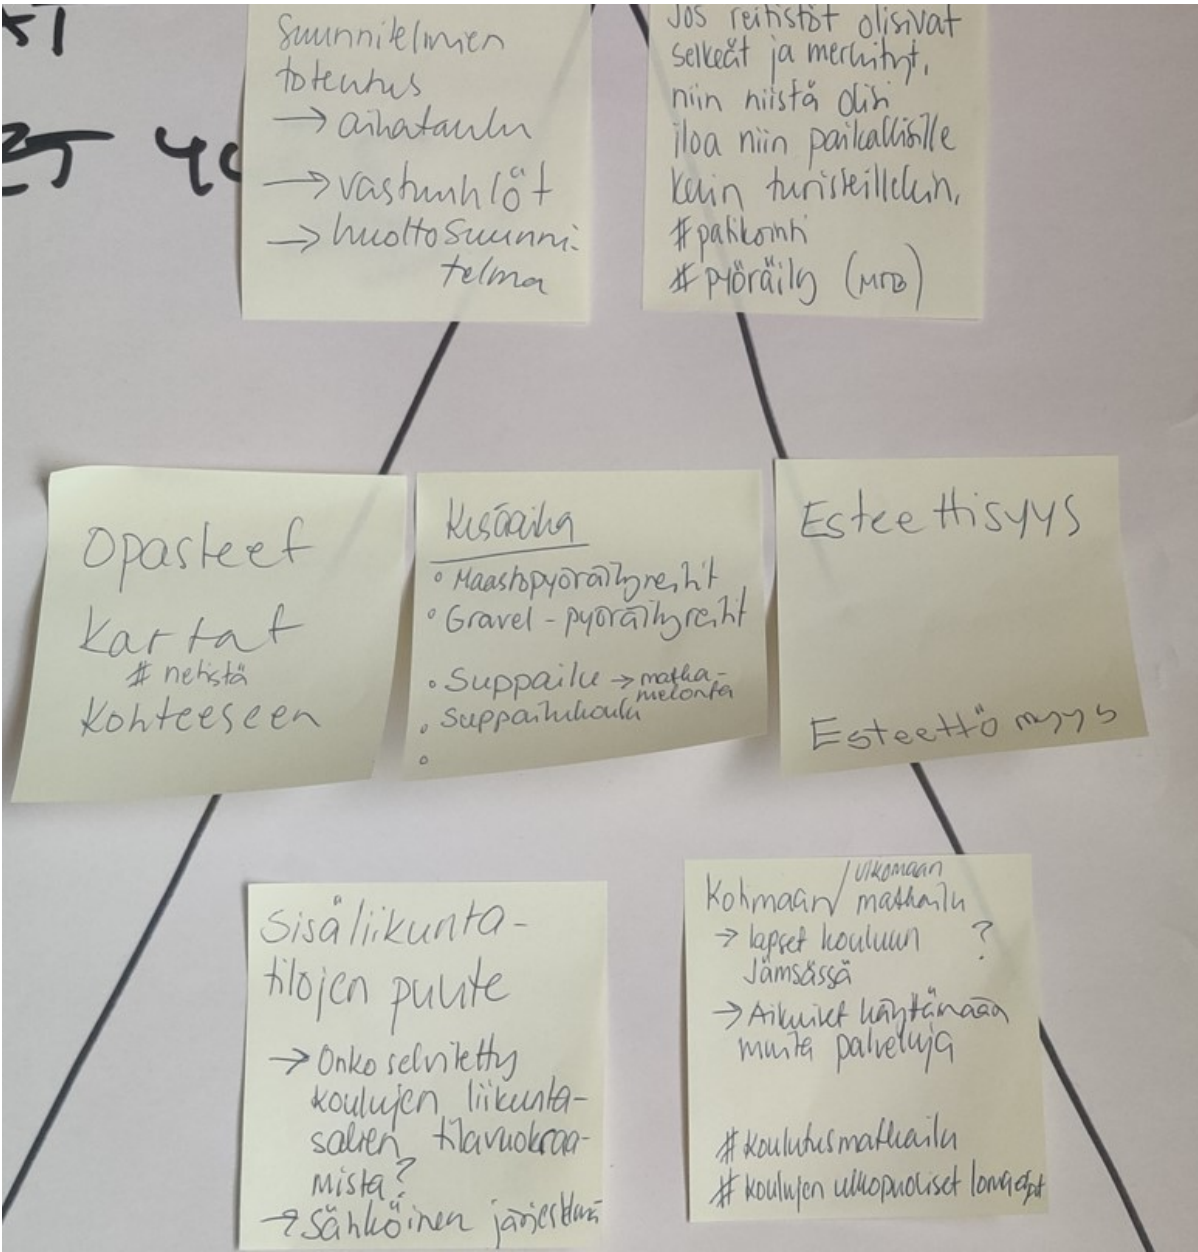 Suunnitelmien
toteutus
→ aikataulu
→ vastuuhlöt
→ huoltosuunni-
telma
Jos reitistöt olisivat
selkeät ja merkityt,
niin niistä olisi
iloa niin paikallisille
kuin turisteillekin.
#patikointi
#pyöräily (MTB)
Opasteet
Kartat
# netistä
Kohteeseen
Kesäaika
• Maastopyöräilyreitit
• Gravel - pyöräilyreitit
• Suppailu → matka-
melonta
• Suppailukoulu
Esteettisyys
Esteettömyys
Sisäliikunta-
tilojen puute
→ Onko selvitetty
koulujen liikunta-
salien tilavuokraa-
mista?
→ Sähköinen järjestelmä
Kotimaan/ulkomaan
matkailu
→ lapset kouluun ?
Jämsässä
→ Aikuiset käyttämään
muita palveluja
#koulutusmatkailu
#koulujen ulkopuoliset